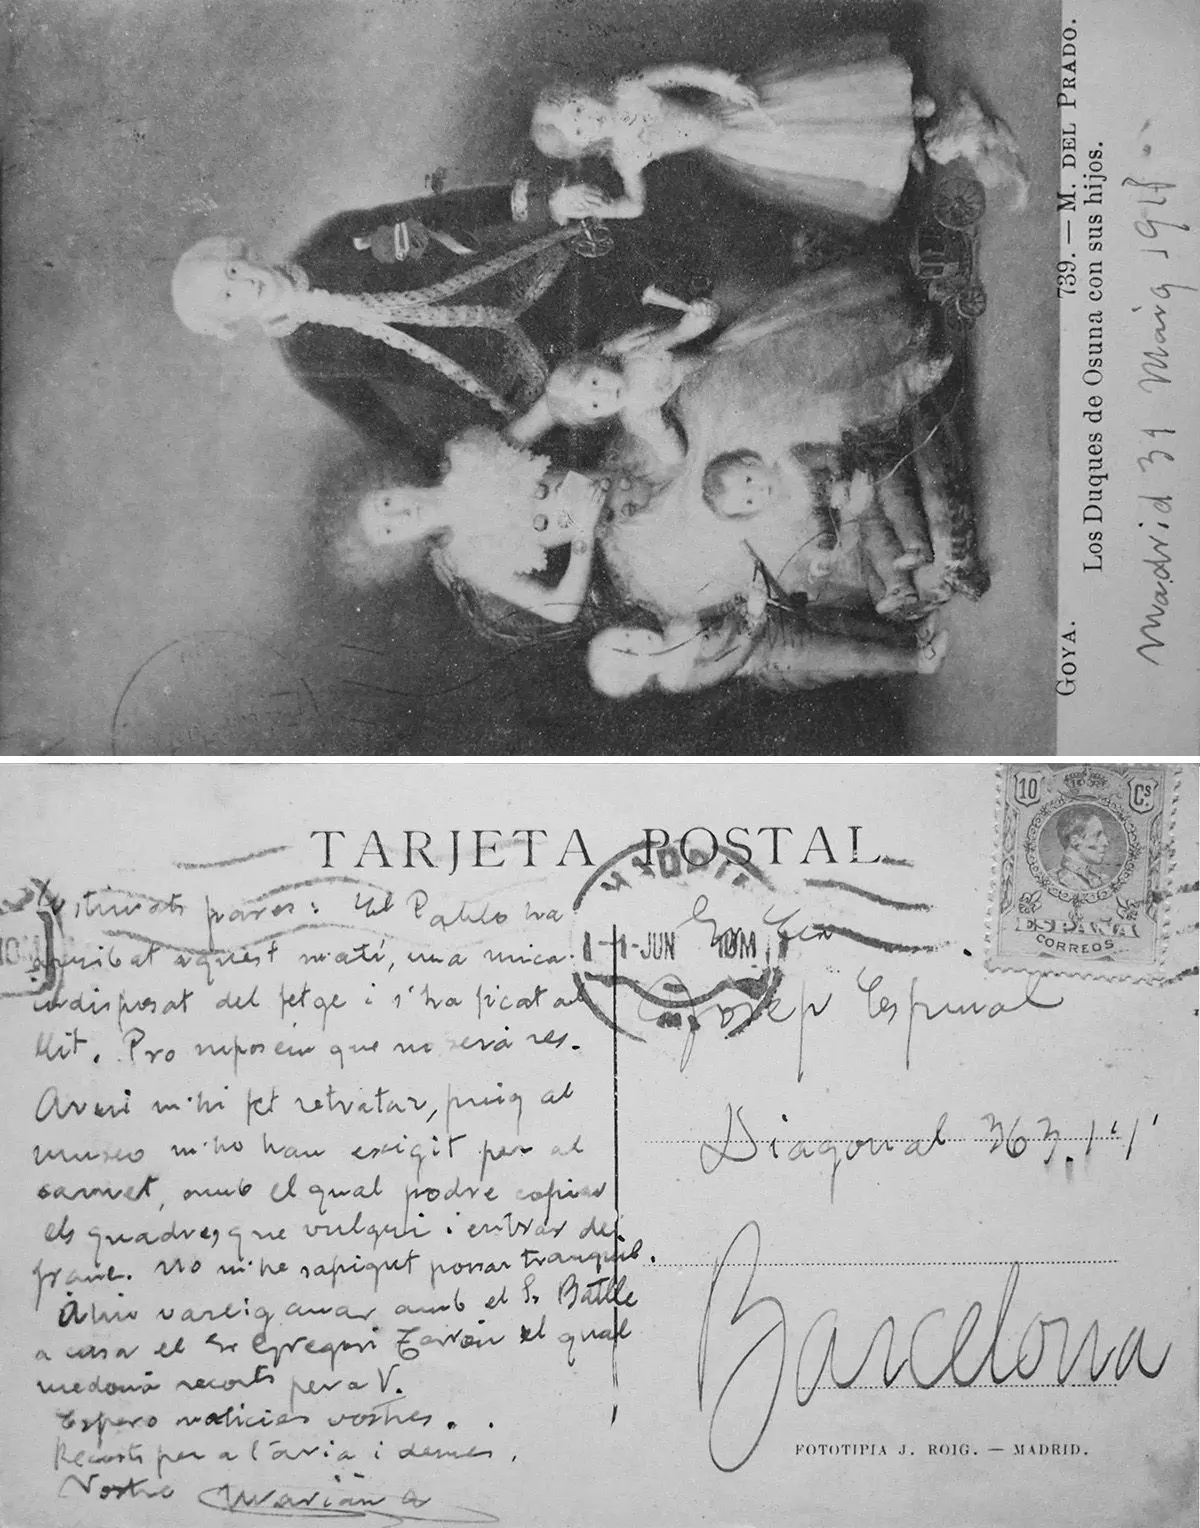 GOYA. 739. — M. DEL PRADO.
Los Duques de Osuna con sus hijos.
Madrid 31 Maig 191
TARJETA POSTAL
10 Cs
ESPAÑA
CORREOS
1-JUN 10M
Estimats pares: El Pablo ha
arribat aquest matí, una mica
indisposat del fetge i s'ha ficat al
llit. Pro suposém que no será res.
Avui m'hi fet retratar, puig al
museo m'ho han exigit per al
carnet, amb el qual podré copiar
els quadres que vulgui i entrar de
franc. No m'he sapigut posar tranquil.
Ahir vareig anar amb el Sr Batlle
a casa el Sr Gregori el qual
medoná recorts per a V.
Espero noticies vostres.
Recorts per a l'avia i demes.
Vostre Mariano
Josep Espinal
Diagonal 363, 1' 1'
Barcelona
FOTOTIPIA J. ROIG. — MADRID.